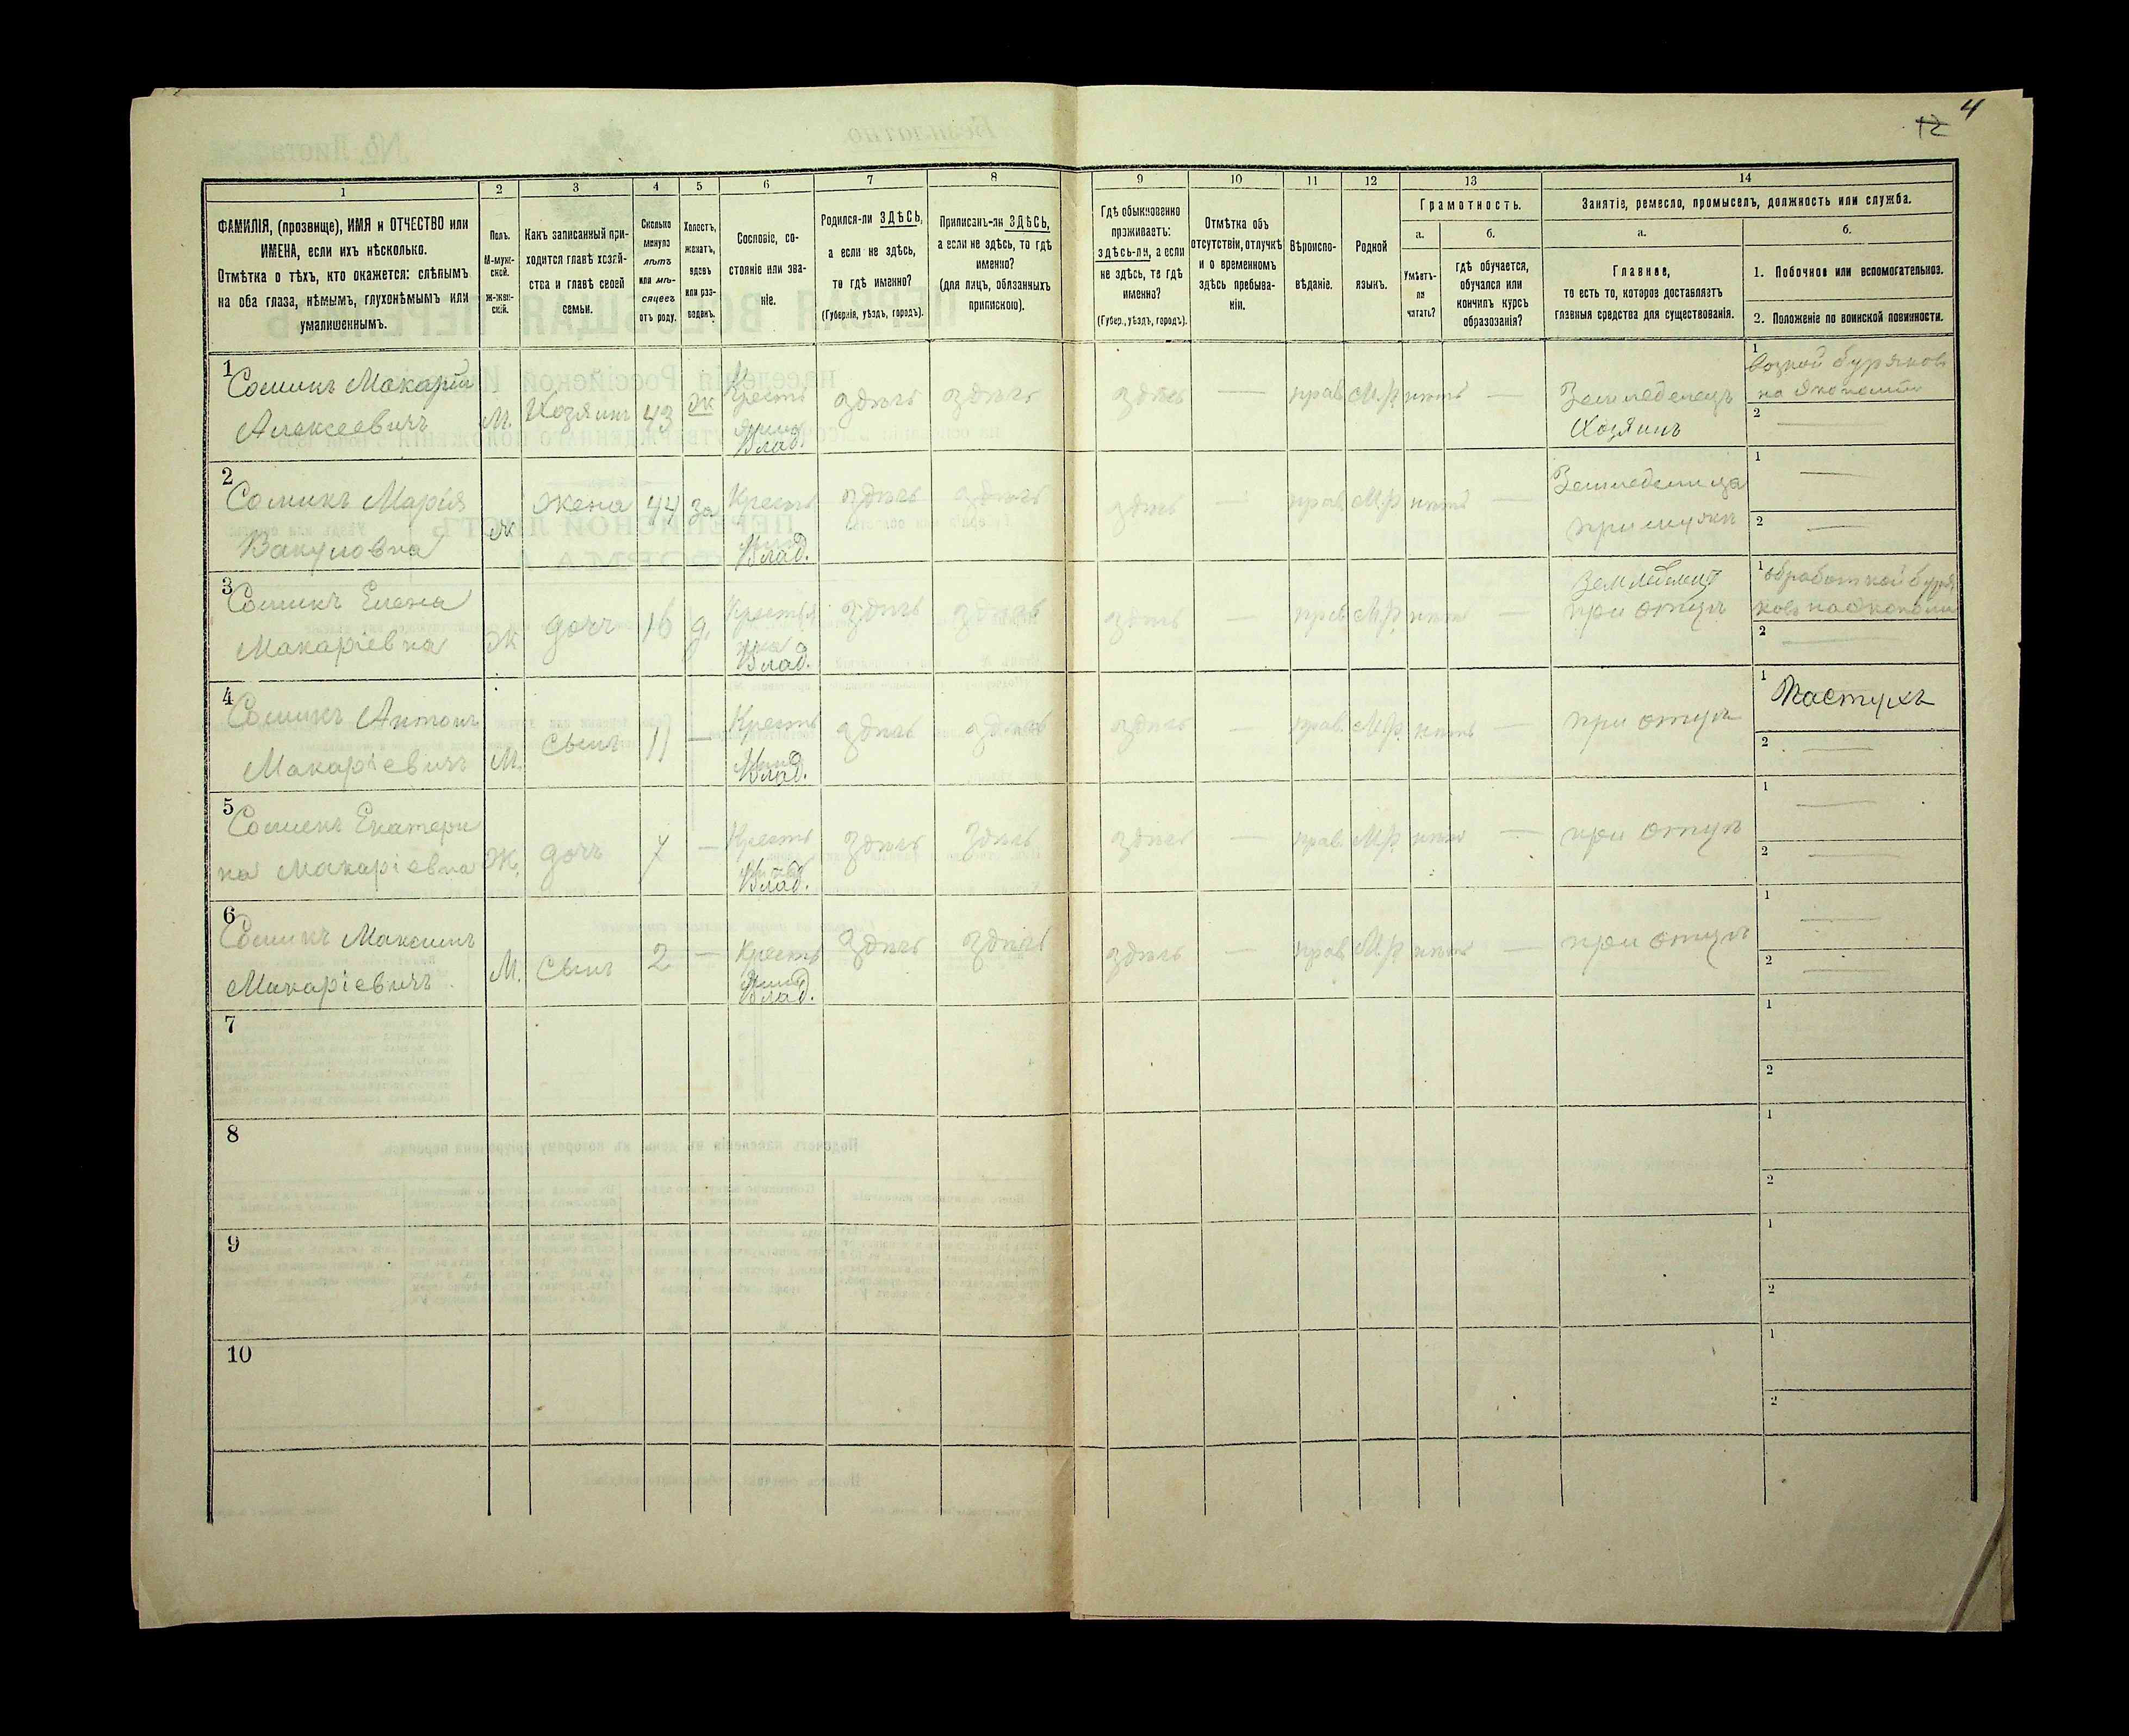 4
12
1 2 3 4 5 6 7 8 9 10 11 12 13 14
ФАМИЛІЯ, (прозвище), ИМЯ и ОТЧЕСТВО или
ИМЕНА, если ихъ нѣсколько.
Отмѣтка о тѣхъ, кто окажется: слѣпымъ
на оба глаза, нѣмымъ, глухонѣмымъ или
умалишеннымъ.
Полъ.
М-муж-
ской.
Ж-жен-
скій.
Какъ записанный при-
ходится главѣ хозяй-
ства и главѣ своей
семьи.
Сколько
минуло
лѣтъ
или мѣ-
сяцевъ
отъ роду.
Холостъ,
женатъ,
вдовъ
или раз-
веденъ.
Сословіе, со-
стояніе или зва-
ніе.
Родился-ли ЗДѢСЬ,
а если не здѣсь,
то гдѣ именно?
(Губернія, уѣздъ, городъ).
Приписанъ-ли ЗДѢСЬ,
а если не здѣсь, то гдѣ
именно?
(для лицъ, обязанныхъ
припискою).
Гдѣ обыкновенно
проживаетъ:
здѣсь-ли, а если
не здѣсь, то гдѣ
именно?
(Губер., уѣздъ, городъ).
Отмѣтка объ
отсутствіи, отлучкѣ
и о временномъ
здѣсь пребыва-
ніи.
Вѣроиспо-
вѣданіе.
Родной
языкъ.
Грамотность.
а.
Умѣетъ-
ли
читать?
б.
гдѣ обучается,
обучался или
кончилъ курсъ
образованія?
Занятіе, ремесло, промыселъ, должность или служба.
а.
Главное,
то есть то, которое доставляетъ
главныя средства для существованія.
б.
1. Побочное или вспомогательное.
2. Положеніе по воинской повинности.
1 Сомикъ Макарій
Алексеевичъ
М. Хозяинъ 43 ж Кресть
Влад.
здѣсь здѣсь здѣсь — прав М.р. нѣтъ —
Земледелецъ
Хозяинъ
1 возкой буряков
на Экономіи
2 —
2 Сомикъ Марія
Вакуловна
ж жена 44 за Кресть
Влад.
здѣсь здѣсь здѣсь — прав М.р. нѣтъ —
Земледелица
при мужи
1 —
2 —
3 Сомикъ Елена
Макаріевна
Ж дочъ 16 д. Крестья
нка
Влад.
здѣсь здѣсь здѣсь — прав М.р. нѣтъ —
Земледелецъ
при отцѣ
1 обработкой буря
ковъ на Экономіи
2 —
4 Сомикъ Антонъ
Макаріевичъ
М. сынъ 11 — Кресть
Влад.
здѣсь здѣсь здѣсь — прав. М.р. нѣтъ —
при отцѣ
1 Пастухъ
2 —
5 Сомикъ Екатери
на Макаріевна
Ж. дочъ 7 — Кресть
Влад.
здѣсь здѣсь здѣсь — прав. М.р. нѣтъ —
при отцѣ
1 —
2 —
6 Сомикъ Максимъ
Макаріевичъ
М. Сынъ 2 — Кресть
Влад.
здѣсь здѣсь здѣсь — прав М.р. нѣтъ —
при отцѣ
1 —
2 —
7
1
2
8
1
2
9
1
2
10
1
2